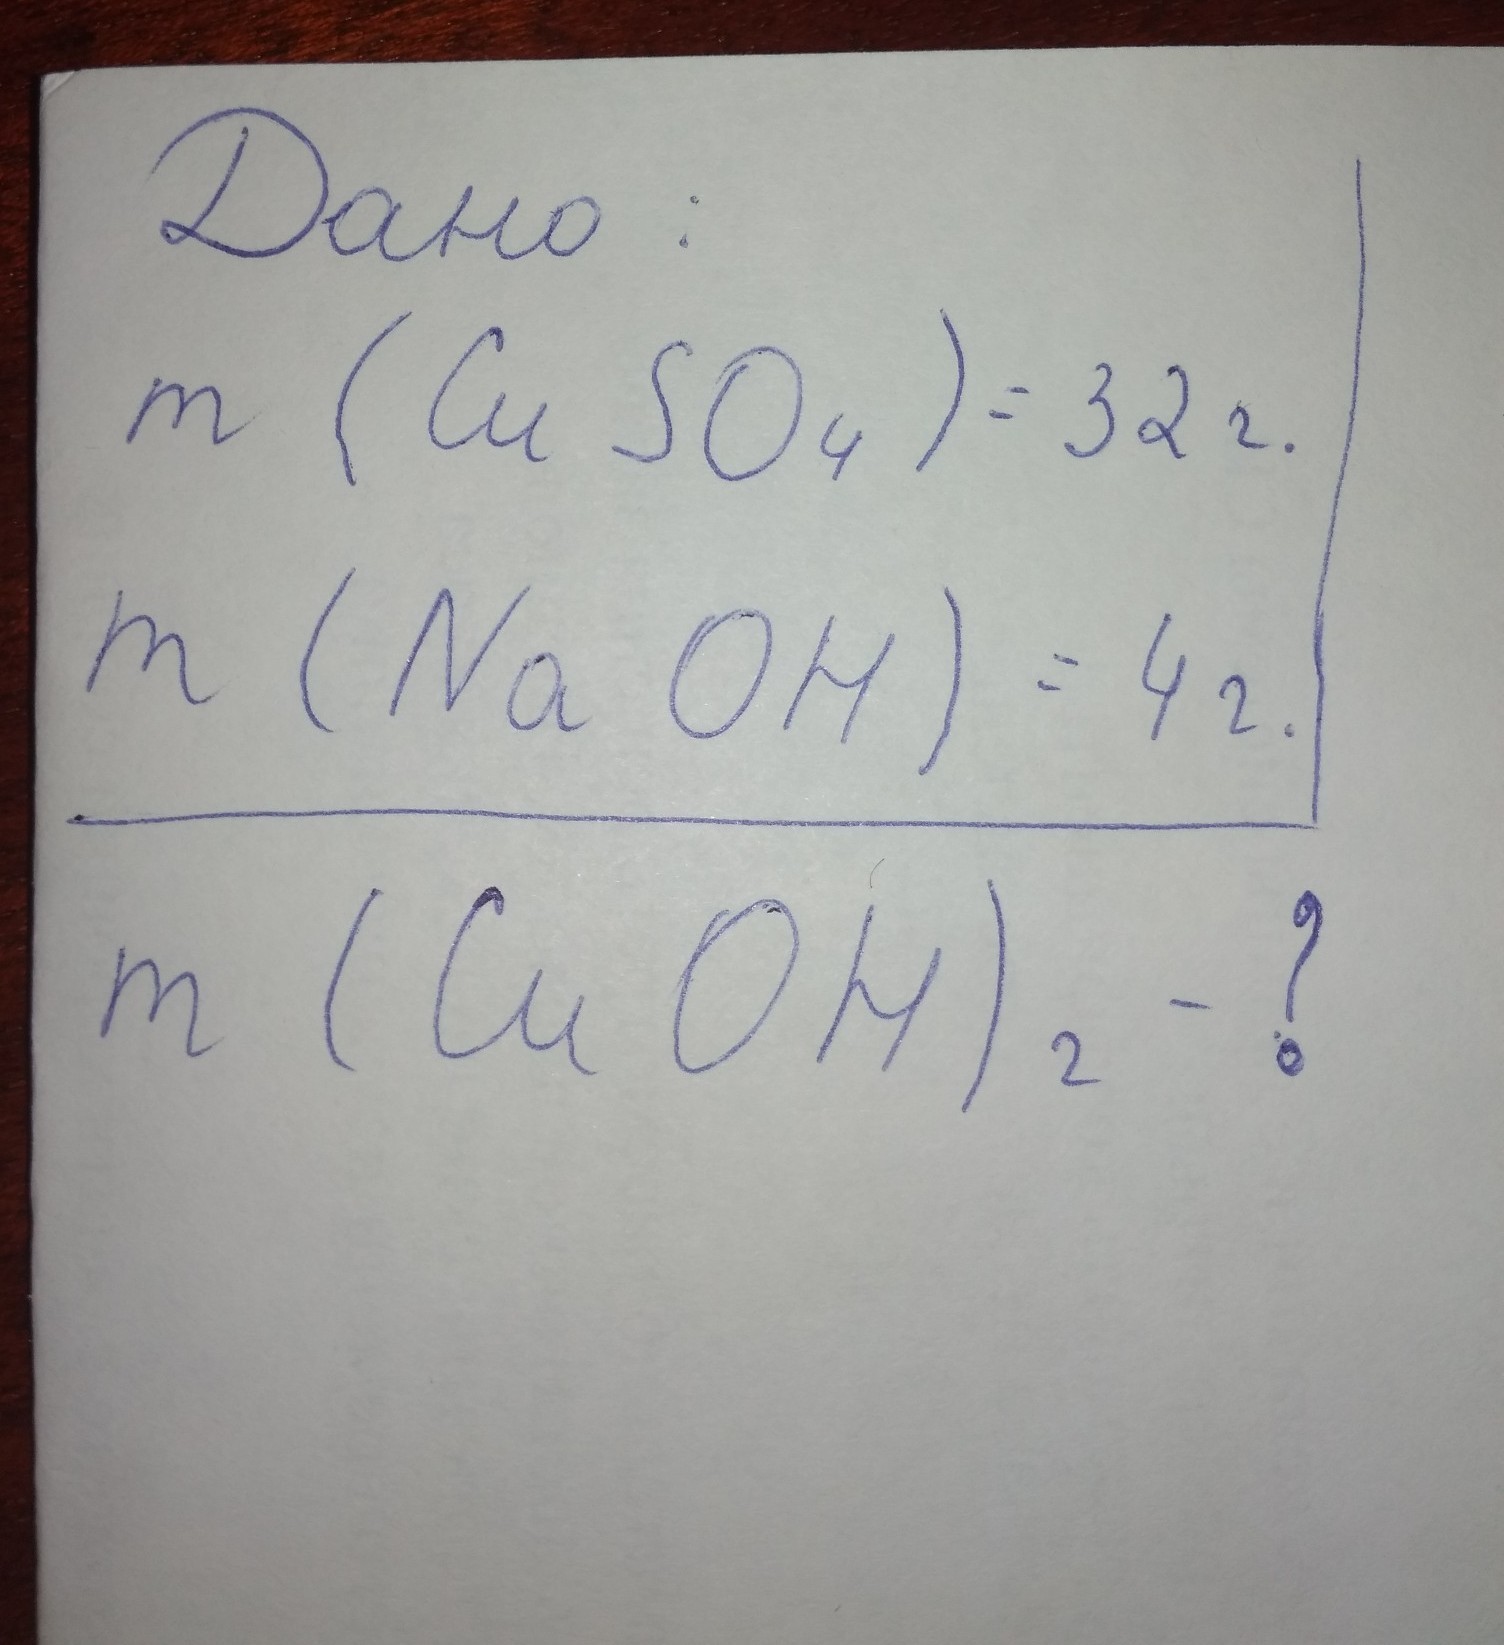 Дано:
m (CuSO₄) = 32 г.
m (NaOH) = 4 г.
m (CuOH)₂ - ?